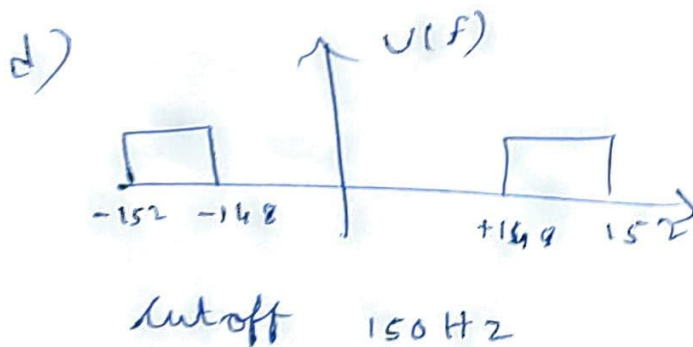 d)
U(f)
-152 -148 +148 152
cutoff 150 Hz